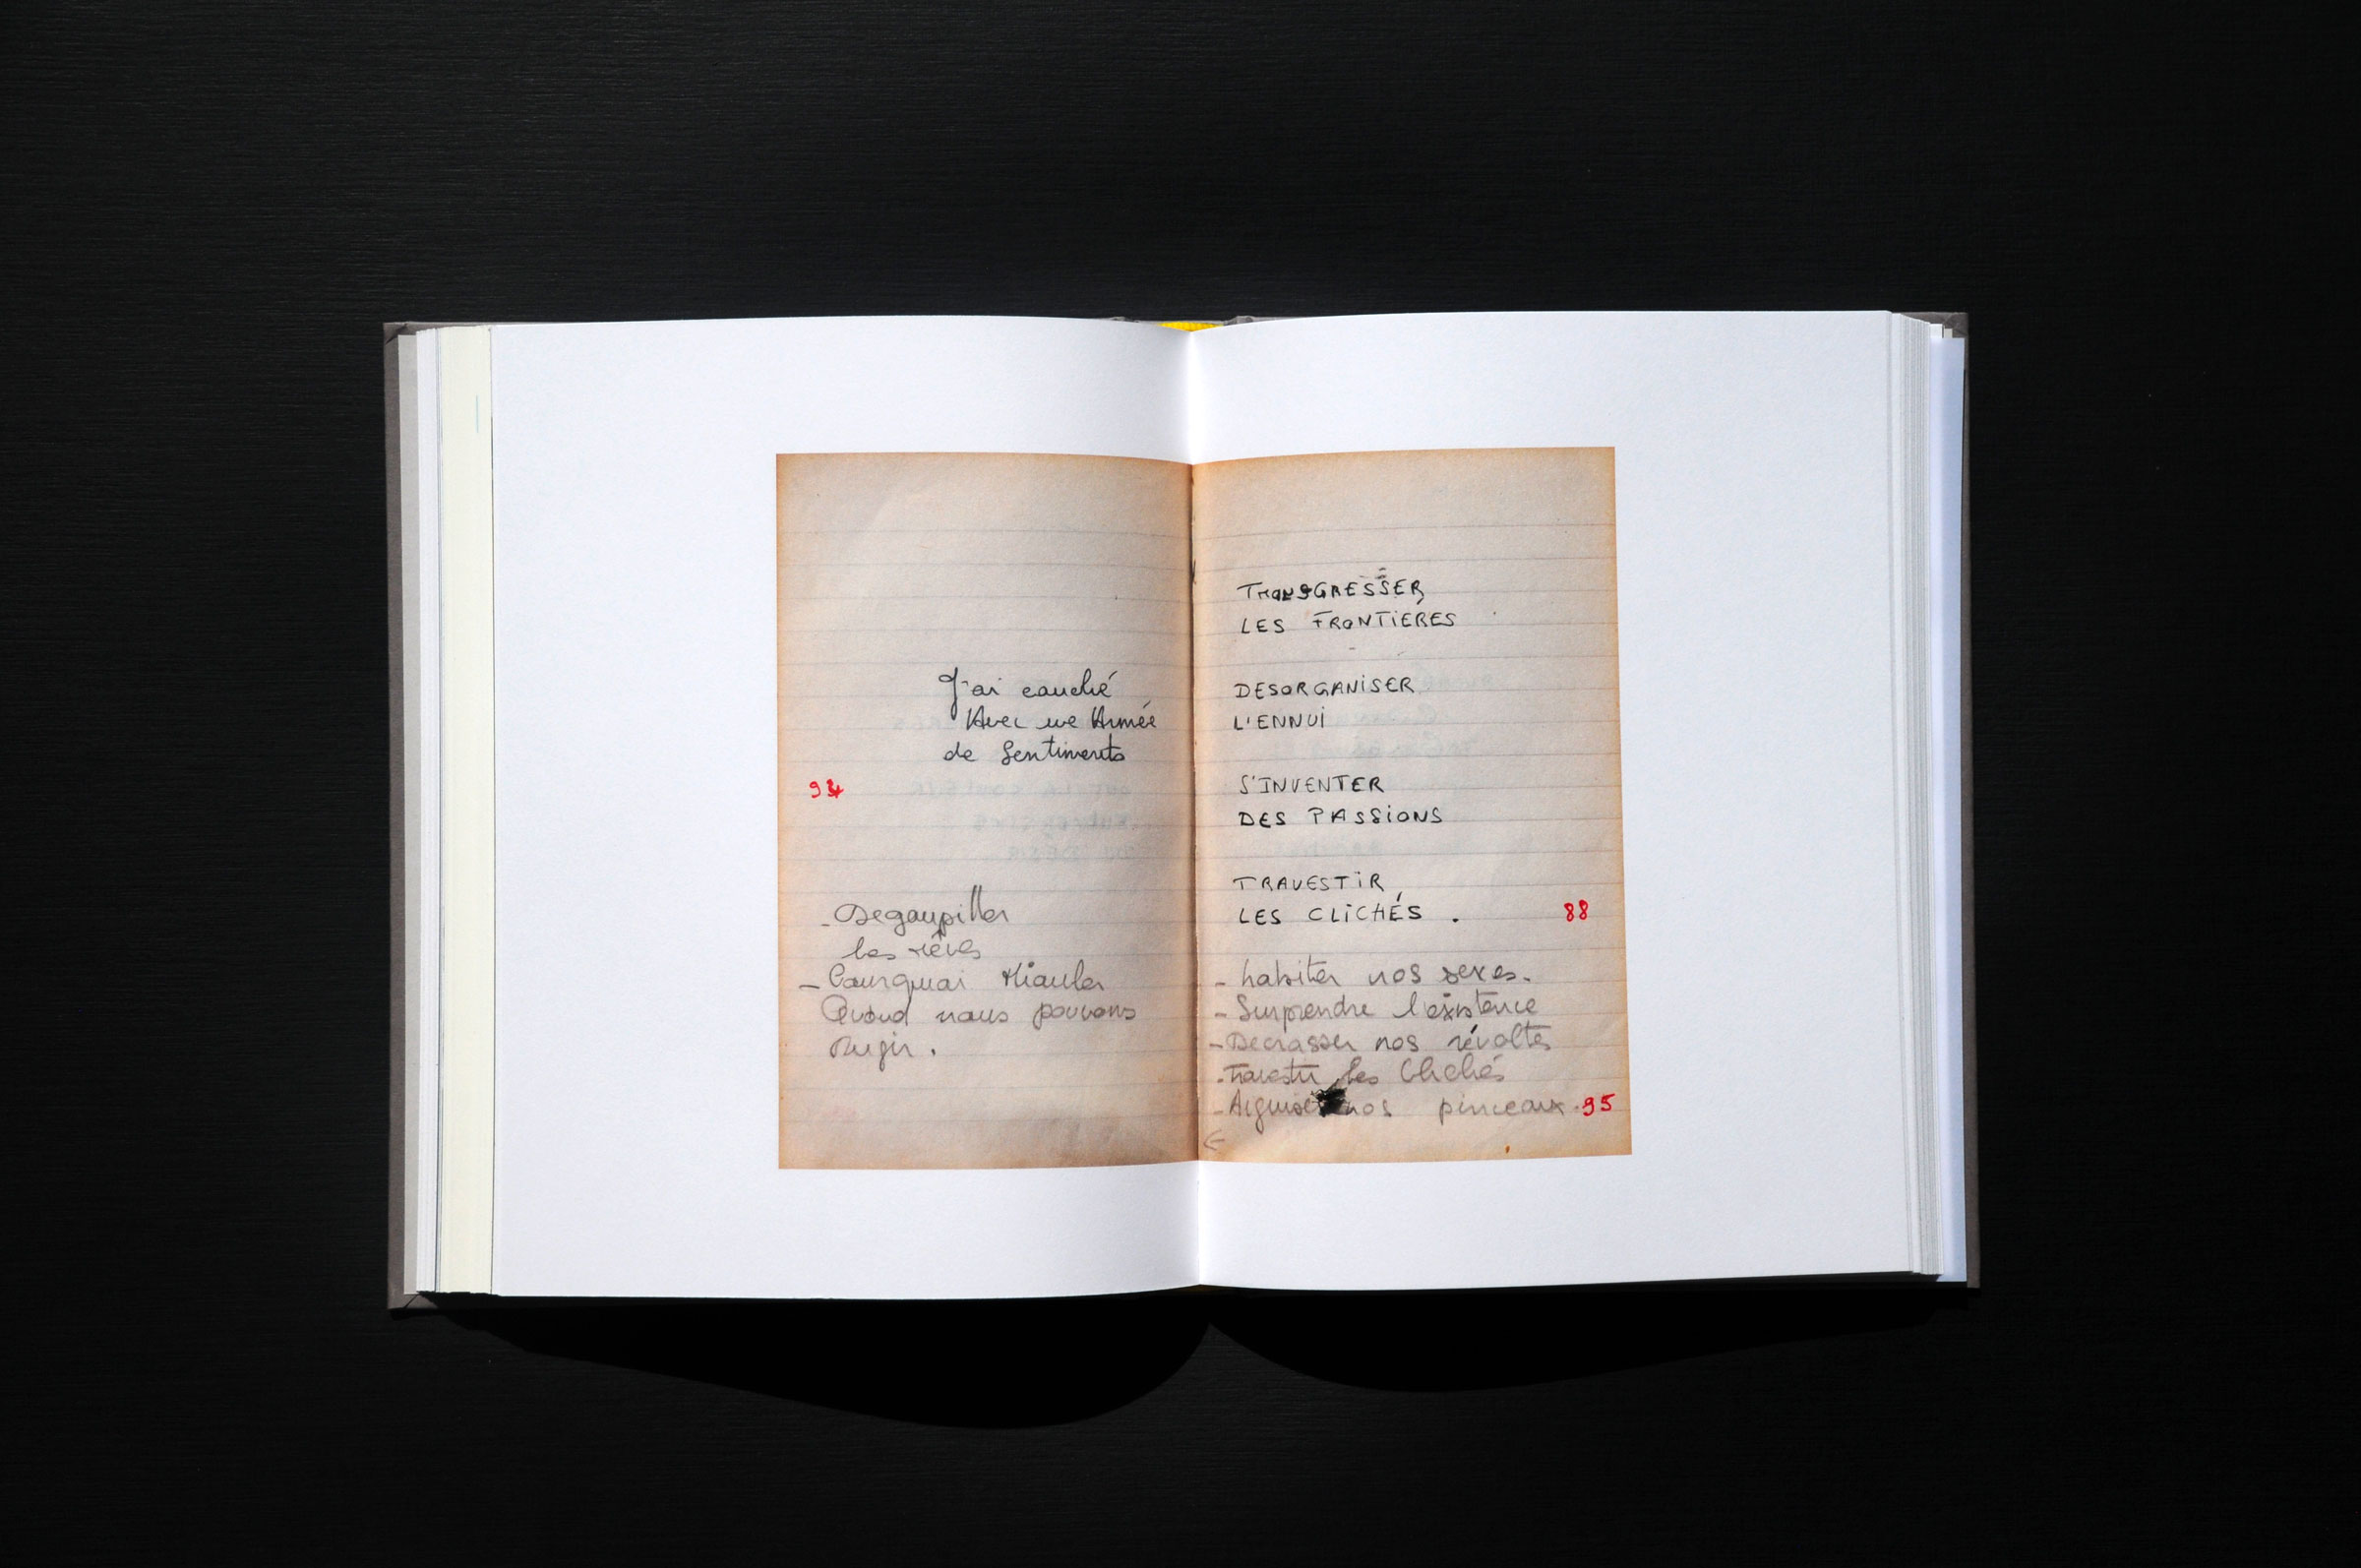 J'ai couché
Avec une Armée
de Sentiments
- Degoupiller
les rêves
- Pourquoi Miauler
Quand nous pouvons
Rugir.
TRANSGRESSER
LES FRONTIÉRES
DESORGANISER
L'ENNUI
S'INVENTER
DES PASSIONS
TRAVESTIR
LES CLICHÉS .
88
- habiter nos sexes.
- Surprendre l'existence
- Decrasser nos révoltes
- Travestir les Clichés
- Aiguiser nos pinceaux. 95